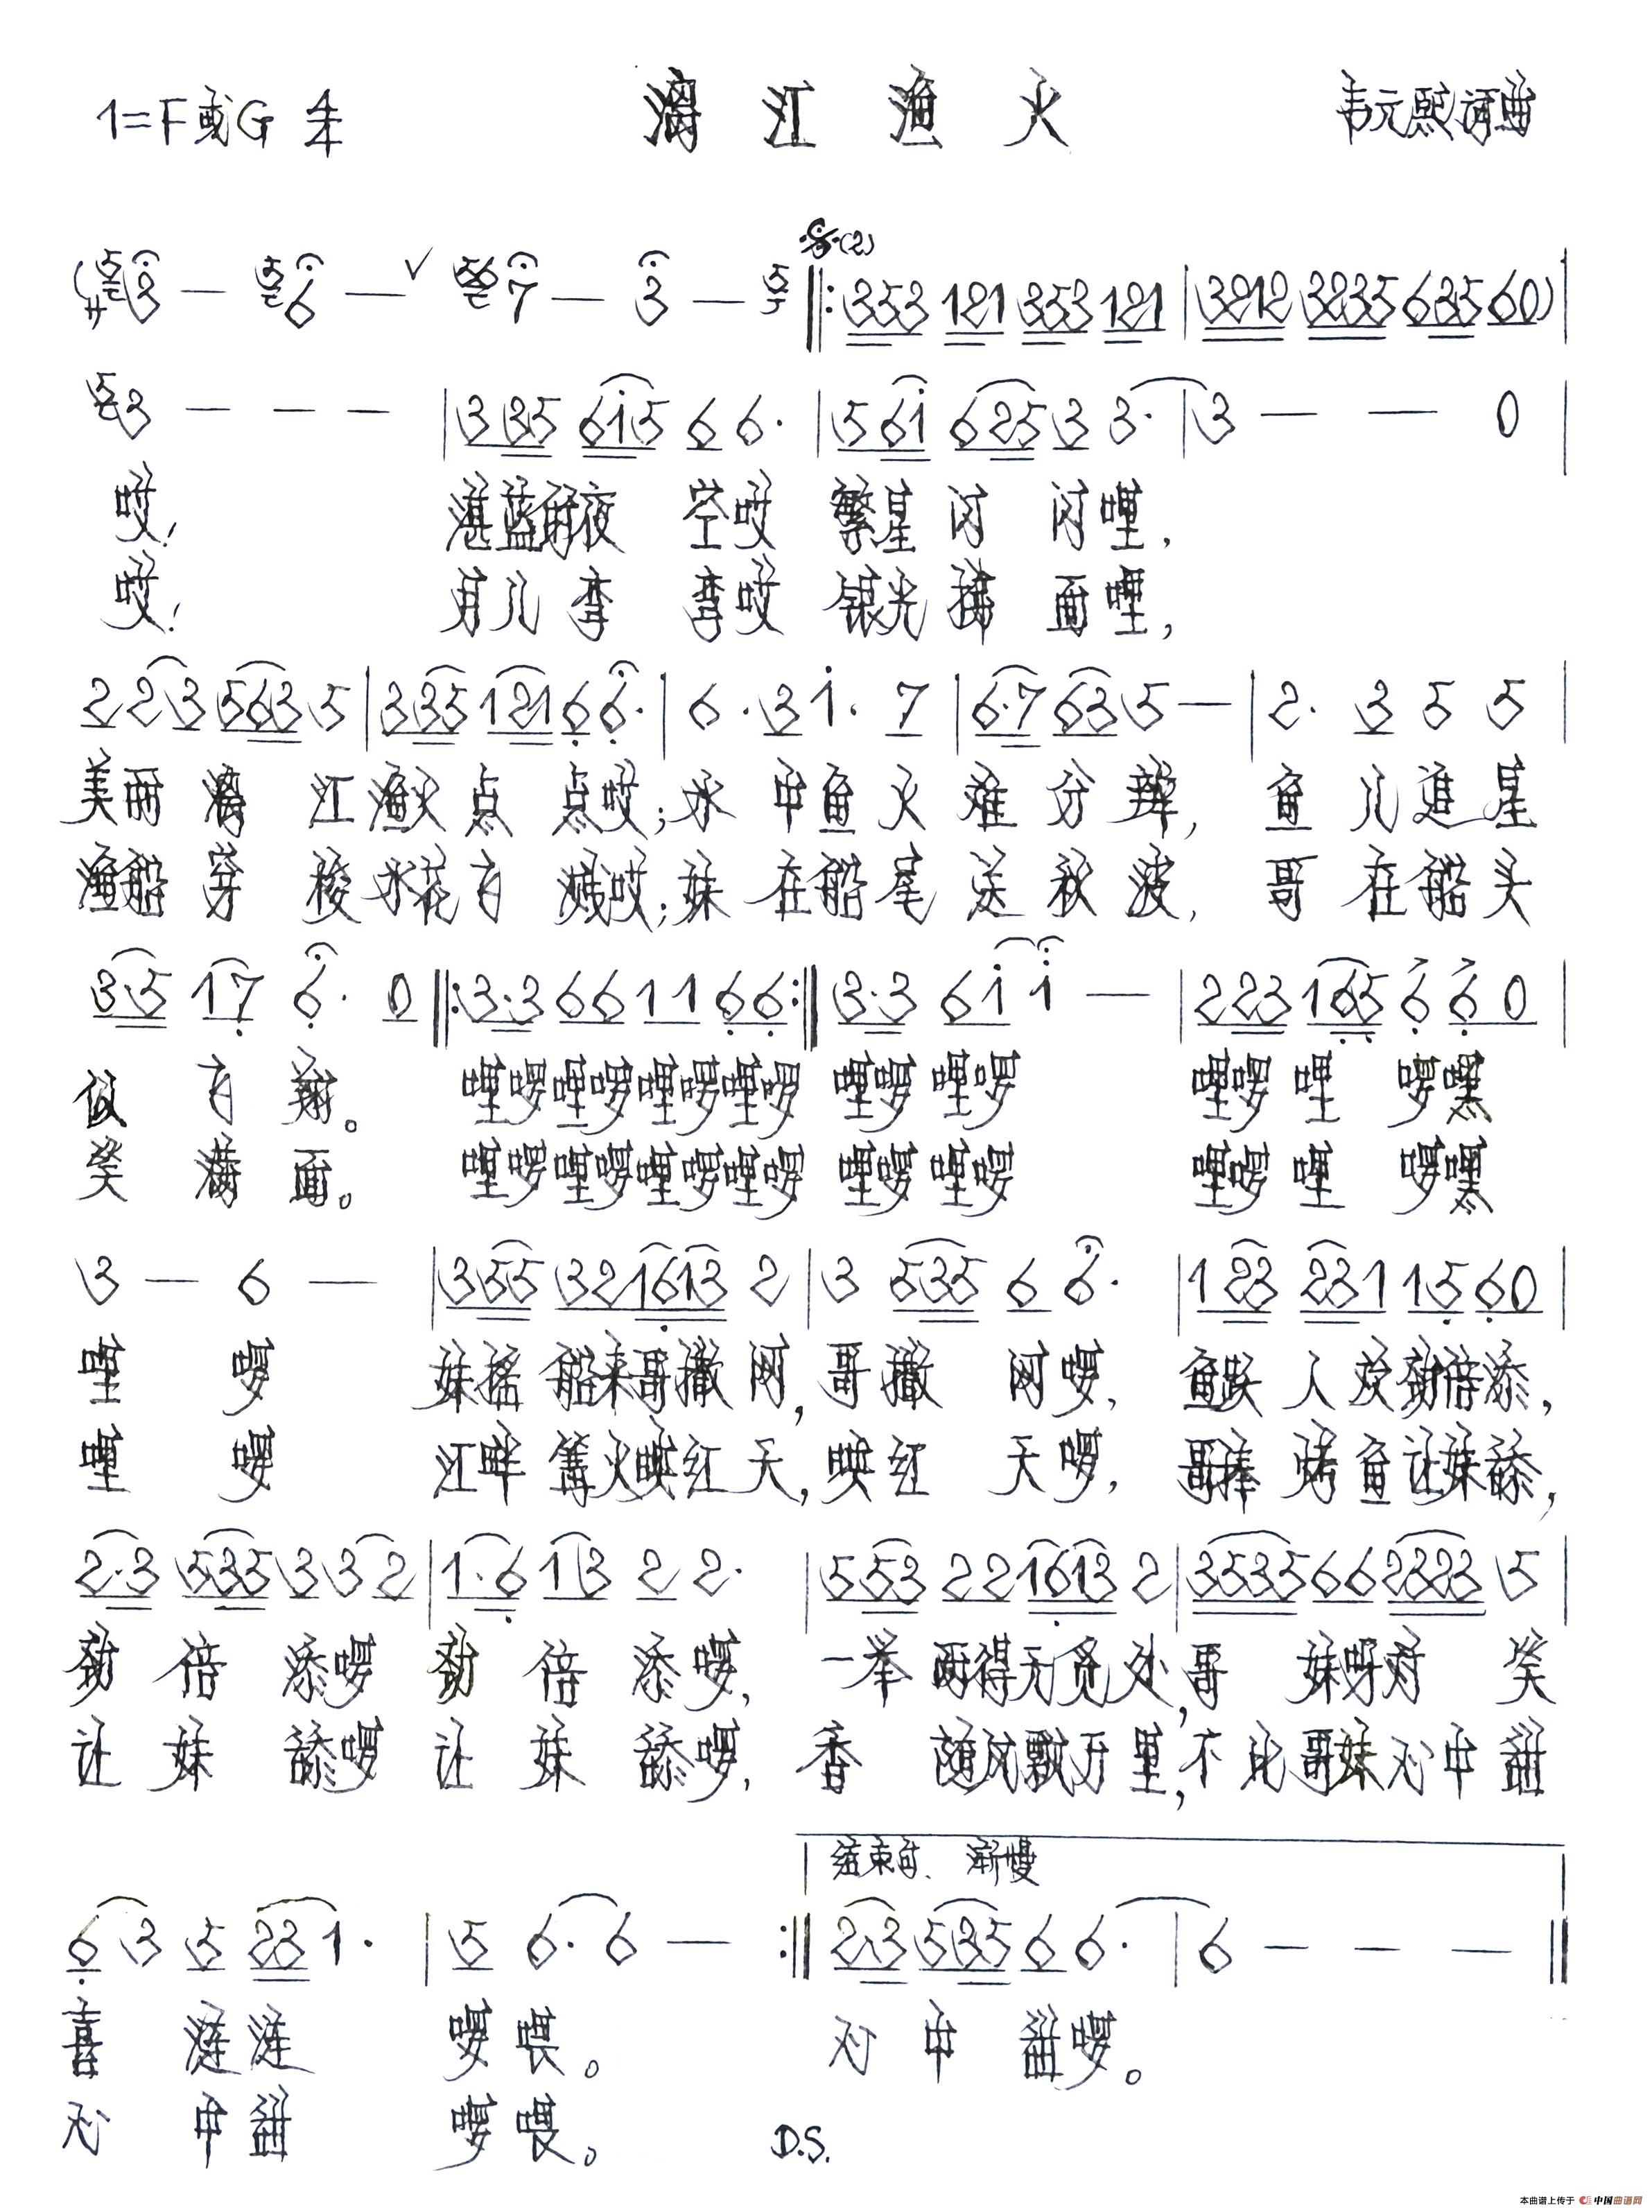 漓江渔火
1=F或G 4/4
韦元熙词曲
𝄋(2)
(5 3 — 6 — ∨ 7 — 3 — 5 ‖: 353 121 353 121 | 3212 3235 635 60) |
3 — — — | 3 35 6i5 6 6. | 5 6i 625 3 3. | 3 — — 0 |
哎! 湛蓝的夜空哎 繁星闪闪哩,
哎! 月儿弯弯哎 银光拂面哩,
2 2 3 563 5 | 335 121 6 6. | 6. 3 i. 7 | 6.7 63 5 — | 2. 3 5 5 |
美丽漓江渔火点点哎;水中鱼火难分辨,鱼儿追星
渔船穿梭水花飞溅哎;妹在船尾送秋波,哥在船头
3.5 17 6. 0 ‖: 3.3 66 11 66 :‖ 3.3 6i i — | 223 165 6 6 0 |
似飞翔。 哩啰哩啰哩啰哩啰 哩啰哩啰 哩啰哩啰嘿
笑满面。 哩啰哩啰哩啰哩啰 哩啰哩啰 哩啰哩啰嘿
3 — 6 — | 355 321613 2 | 3 535 6 6. | 123 231 15 60 |
哩啰 妹摇船来哥撒网,哥撒网啰,鱼跃人欢劲倍添,
哩啰 江畔篝火映红天,映红天啰,哥捧烤鱼让妹舔,
2.3 535 3 3 2 | 1.6 13 2 2. | 553 221613 2 | 3535662323 5 |
劲倍添啰劲倍添啰,一举两得无觅处,哥妹呀对笑
让妹舔啰让妹舔啰,香随风飘万里,不比哥妹心中甜
结束句、渐慢
6 3 5 23 1. | 5 6. 6 — :‖ 2.3 535 6 6. | 6 — — — ‖
喜涟涟 啰喂。 心中甜啰。
心中甜 啰喂。
D.S.
本曲谱上传于 中国曲谱网